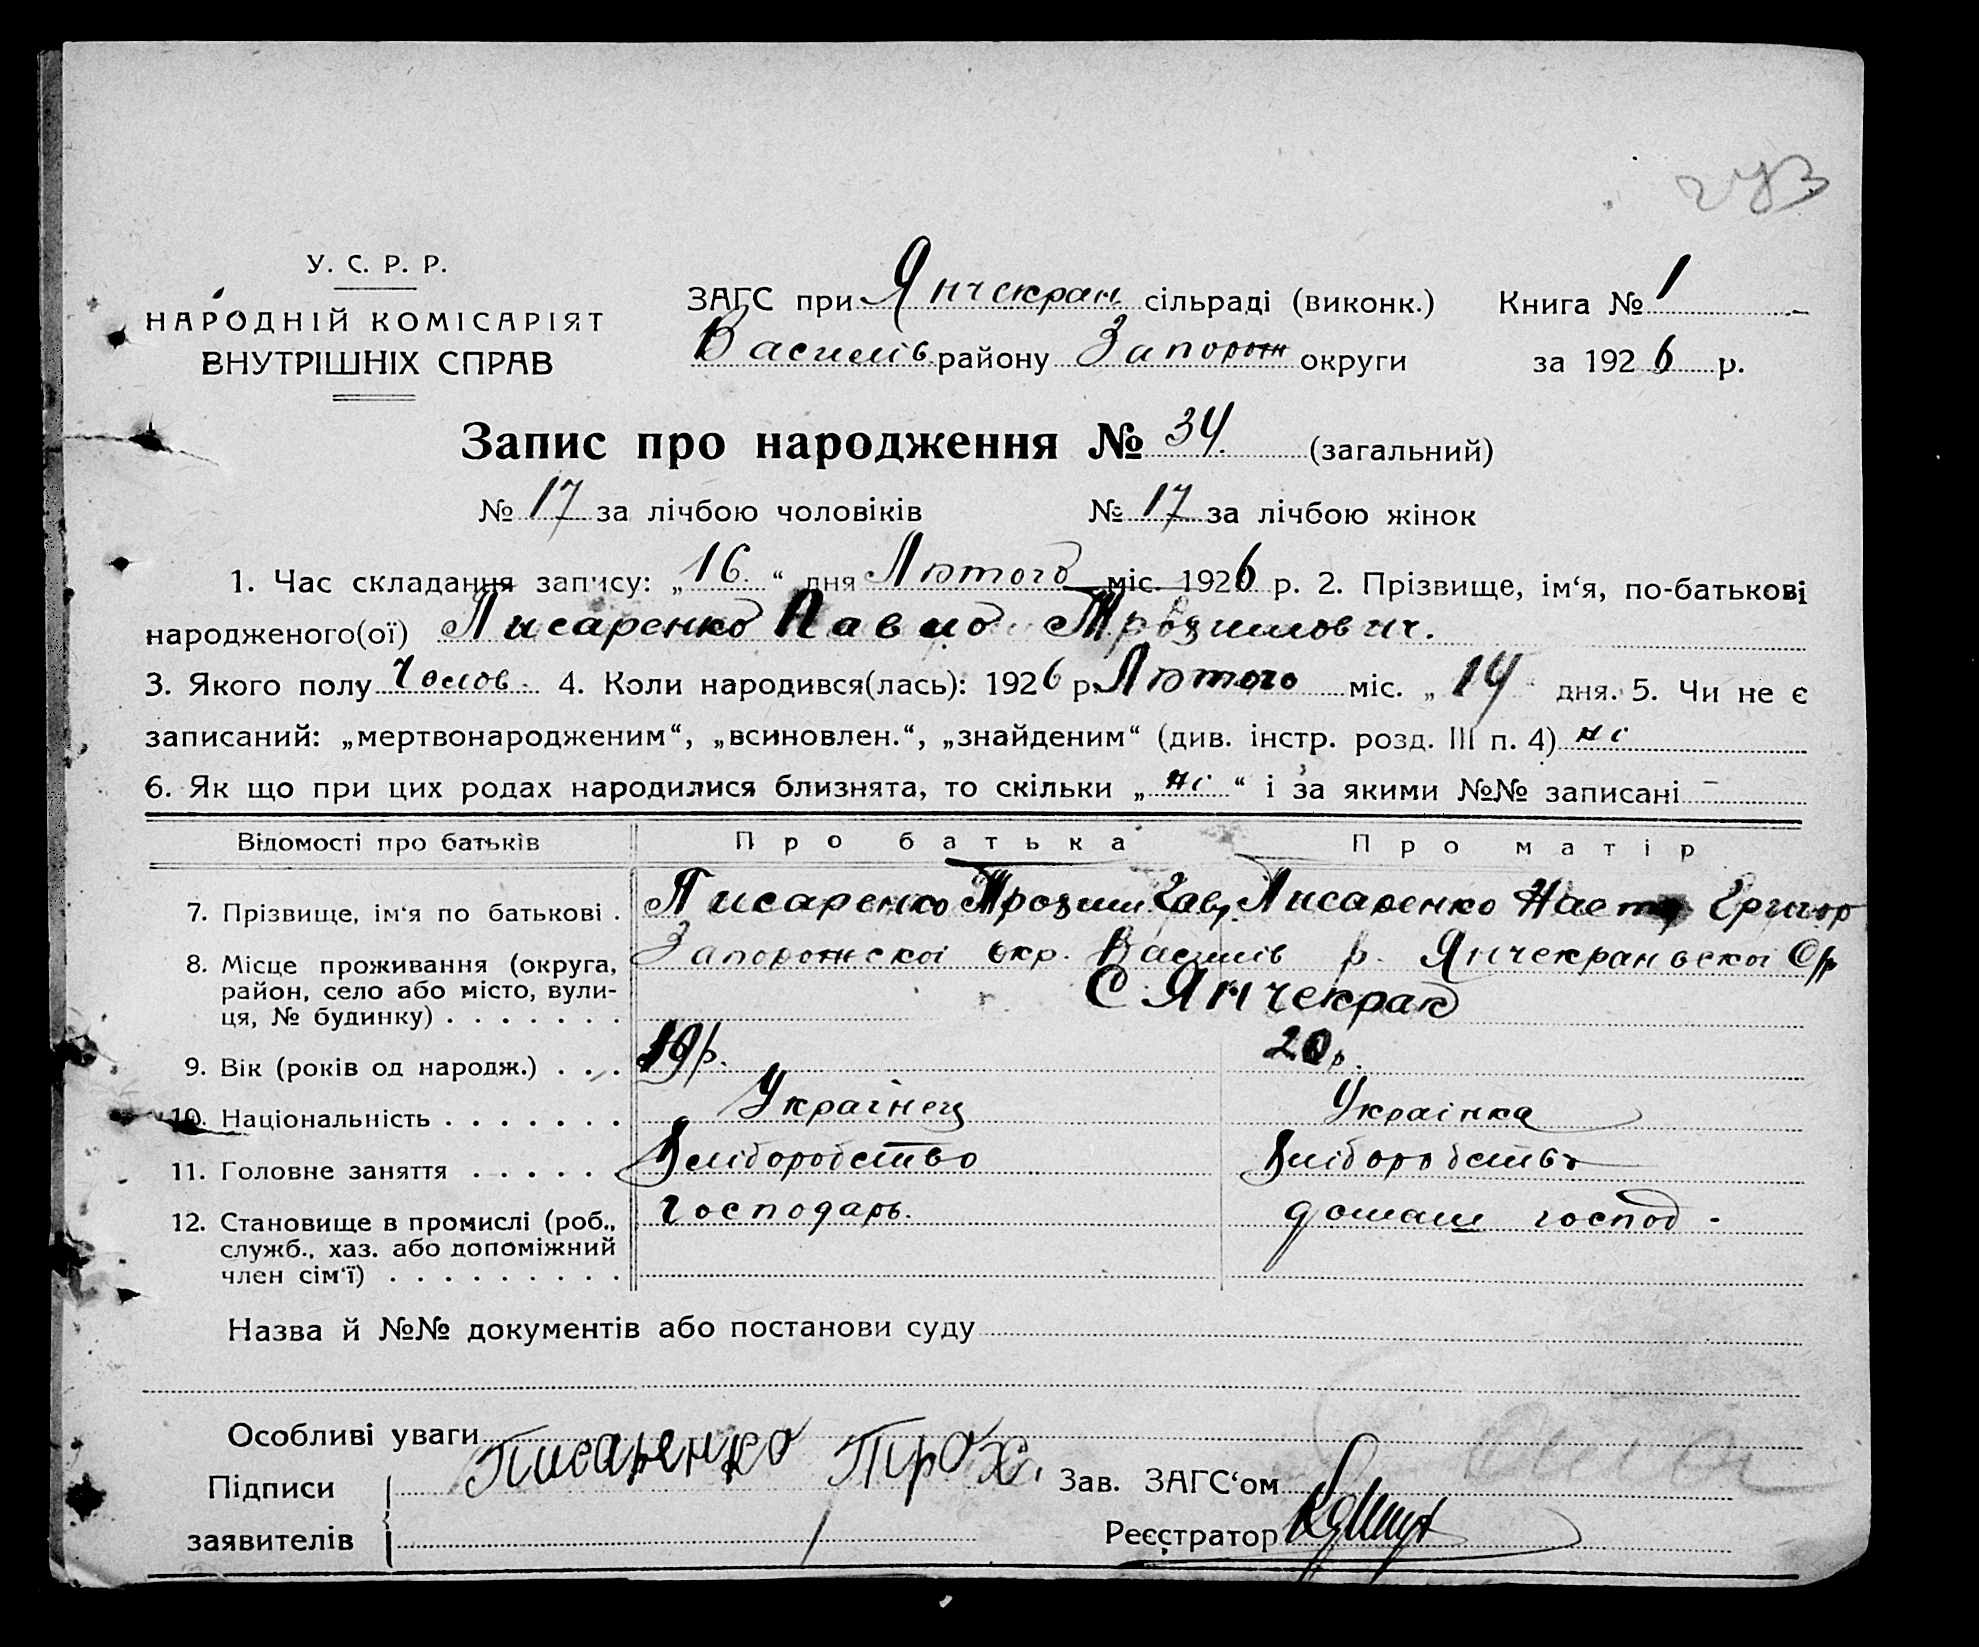 273
У. С. Р. Р.
НАРОДНІЙ КОМІСАРІЯТ
ВНУТРІШНІХ СПРАВ
ЗАГС при Янчекран сільраді (виконк.) Книга № 1
Василів району Запорож округи за 1926 р.
Запис про народження № 34. (загальний)
№ 17 за лічбою чоловіків № 17 за лічбою жінок
1. Час складання запису: „16.“ дня Лютого міс. 1926 р. 2. Прізвище, ім‘я, по-батькові
народженого(ої) Писаренко Павло
3. Якого полу Чолов. 4. Коли народився(лась): 1926 р. Лютого міс. „14“ дня. 5. Чи не є
записаний: „мертвонародженим“, „всиновлен.“, „знайденим“ (див. інстр. розд. III п. 4) ні
6. Як що при цих родах народилися близнята, то скільки „ні“ і за якими №№ записані –
Відомості про батьків Про батька Про матір
7. Прізвище, ім‘я по батькові . Писаренко Писаренко Григор
8. Місце проживання (округа, Запорожскоі окр. Василів р. Янчекраньскоі С/р
район, село або місто, вули- С. Янчекрак
ця, № будинку) . . . . . . .
9. Вік (років од народж.) . . . 19 р. 20 р.
10. Національність . . . . . . . Украінец Украінка
11. Головне заняття . . . . . Хліборобство Хліборобство
12. Становище в промислі (роб., господарь. домаш господ.
служб., хаз. або допоміжний
член сім‘ї) . . . . . . . . .
Назва й №№ документів або постанови суду
Особливі уваги
Підписи Писаренко Трох. Зав. ЗАГС‘ом
заявителів Реєстратор